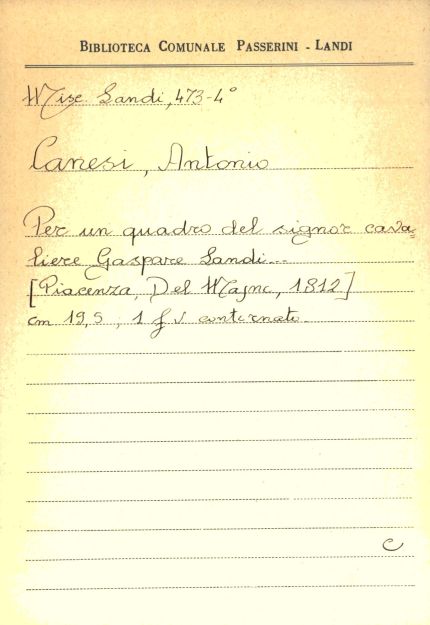 BIBLIOTECA COMUNALE PASSERINI - LANDI
Misc. Landi, 473-4°
Canesi, Antonio
Per un quadro del signor cava-
liere Gaspare Landi...
[Piacenza, Del Majno, 1812]
cm 19,5 ; 1 f v contornato.
C